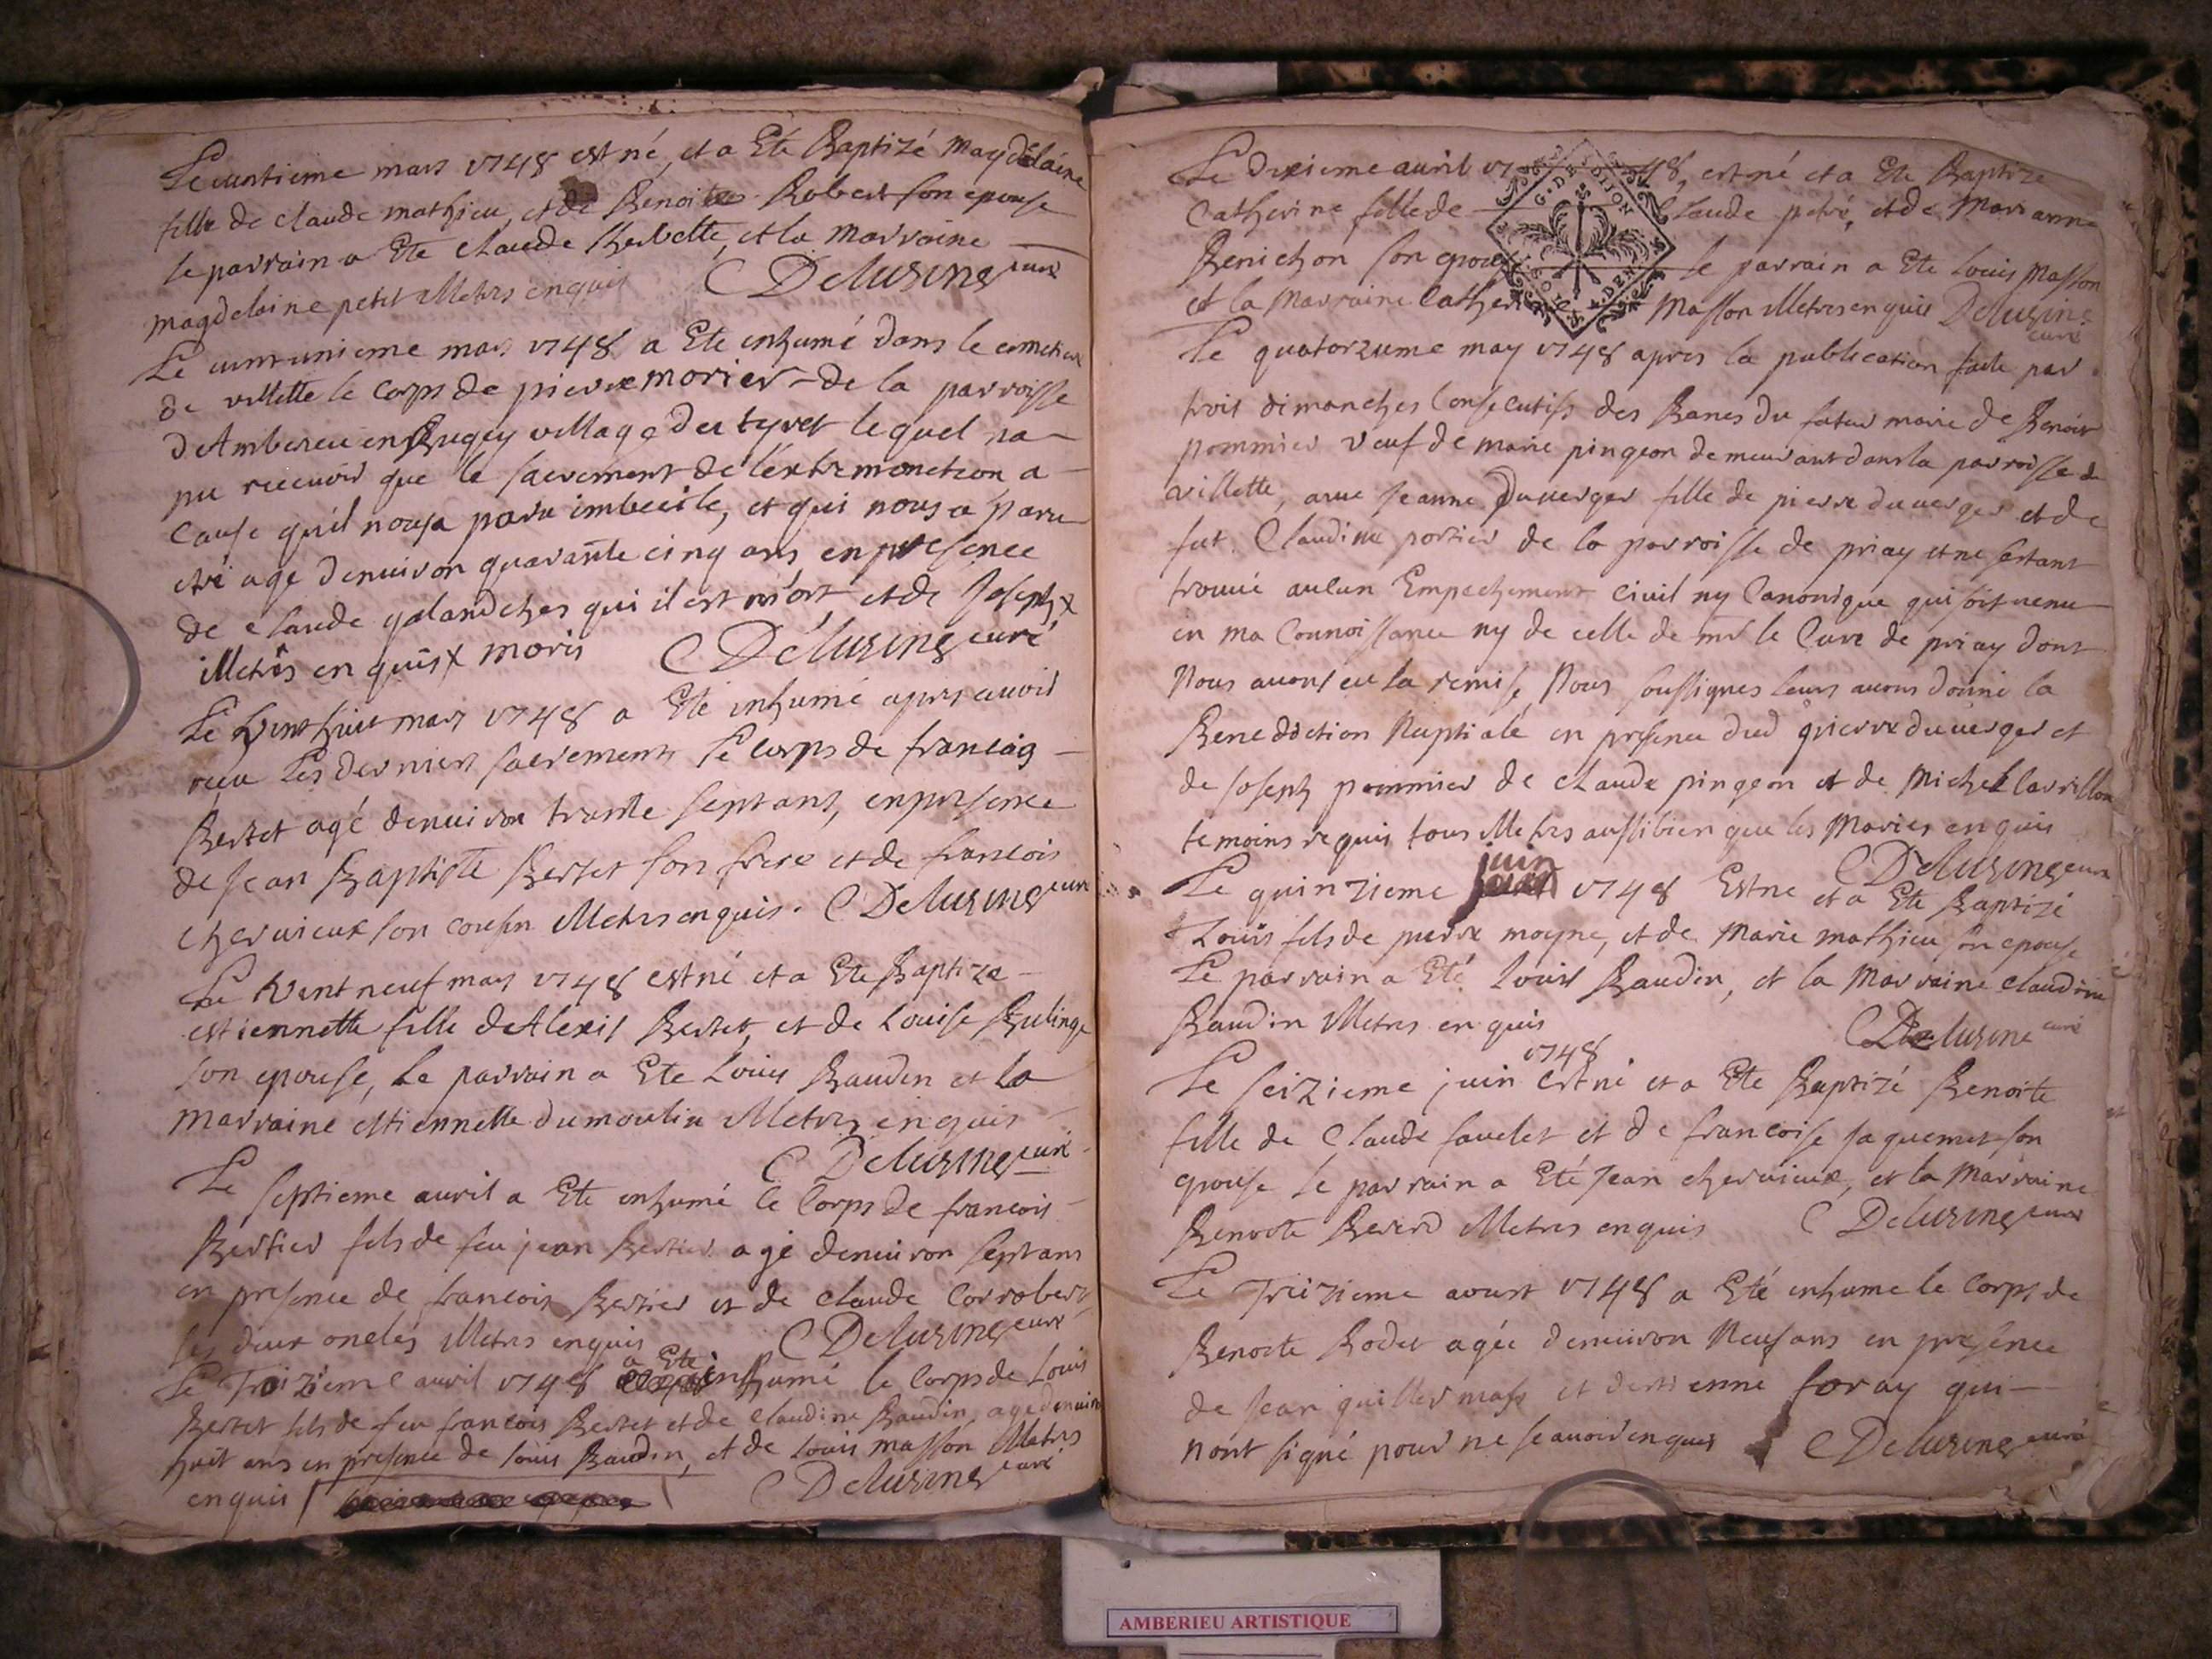 Le vintieme mars 1748 est né, et a Eté Baptizé magdelaine
fille de claude mathieu, et de Benoite Robert son epouse
le parrain a Ete claude Herbette, et la marraine
magdelaine petit illetrés enquis Delusine curé
Le vint unieme mars 1748 a Ete inhumé dans le cimetiere
de villette le corps de pierre morier de la parroisse
d'Ambereu en Bugey village du tyret lequel na
pu recevoir que le sacrement de l'extremonction a
cause qu'il nous a paru imbecile, et qui nous a paru
etre agé denviron quarante cinq ans en presence
de claude galand ches qui il est mort et de Joseph x
illetrés en quis x moris Delusine curé
Le vint huit mars 1748 a Eté inhumé apres avoir
receu les derniers sacrements le corps de francois
Bertet agé denviron trante sept ans, en presence
de Jean Baptiste Bertet son frere et de francois
chervieux son cousin illetrés enquis. Delusine curé
Le vint neuf mars 1748 est né et a Ete Baptize
estiennette fille d'Alexis Bertet, et de Louise Bulinge
son epouse, Le parrain a Ete Louis Baudin et la
marraine estiennette dumoulin illetrés enquis
Delusine curé
Le septieme avril a Ete inhumé le Corps de francois
Bertier fils de feu jean Bertier agé denviron sept ans
en presence de francois Bertier et de claude Corrobert
ses deux oncles illetrés enquis Delusine curé
Le Troizieme avril 1748 a Ete inhumé le Corps de Louis
Bertet fils de feu francois Bertet et de claudine Baudin agé denviron
huit ans en presence de Louis Baudin, et de Louis masson illetrés
enquis Delusine curé
Le dixieme avril 1748, est né et a Ete Baptize
Catherine fille de Claude petré, et de Marianne
Benichon son epouse le parrain a Ete Louis Masson
et la marraine Catherine Masson illetrés enquis Delusine
curé
G. DE DIJON
Le quatorzieme may 1748 apres la publication faite par
trois dimanches Consecutifs des Banes du futur marie de Benoit
pommier veuf de marie pingeon demeurant dans la parroisse de
villette, avec Jeanne Duverger fille de pierre duverger et de
fut. Claudine portier de la parroisse de priay et ne sestant
trouvé aucun Empechement civil ny Canonique qui soit venu
en ma Connoissance ny de celle de mr le Cure de priay dont
Nous avons eu la remise, Nous soussignes leurs avons donné la
Benediction Nuptiale en presence dud pierre duverger et
de Joseph pommier de claude pingeon et de Michel lavillon
temoins requis tous illetrés aussibien que les Mariés enquis
Delusine curé
Le quinzieme juin 1748 Est né et a Ete Baptizé
Louis fils de pierre moyne, et de Marie mathieu son epouse
Le parrain a Eté Louis Baudin, et la Marraine claudine
Baudin illetrés en quis Delusine curé
Le seizieme juin 1748 est né et a Ete Baptizé Benoite
fille de Claude favelet et de francoise jaquemet son
epouse le parrain a Eté Jean chervieux, et la Marraine
Benoite Bererd illetrés enquis Delusine curé
Le Treizieme aoust 1748 a Eté inhume le Corps de
Benoite Bodet agée denviron Neuf ans en presence
de Jean guillermass et destienne foray qui
nont signé pour ne scavoir enquis Delusine curé
AMBERIEU ARTISTIQUE